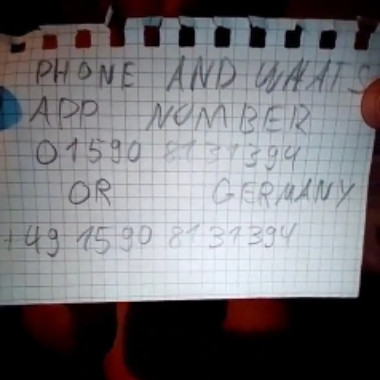 PHONE AND WHATS
APP NUMBER
01590 8131394
OR GERMANY
+49 1590 8131394